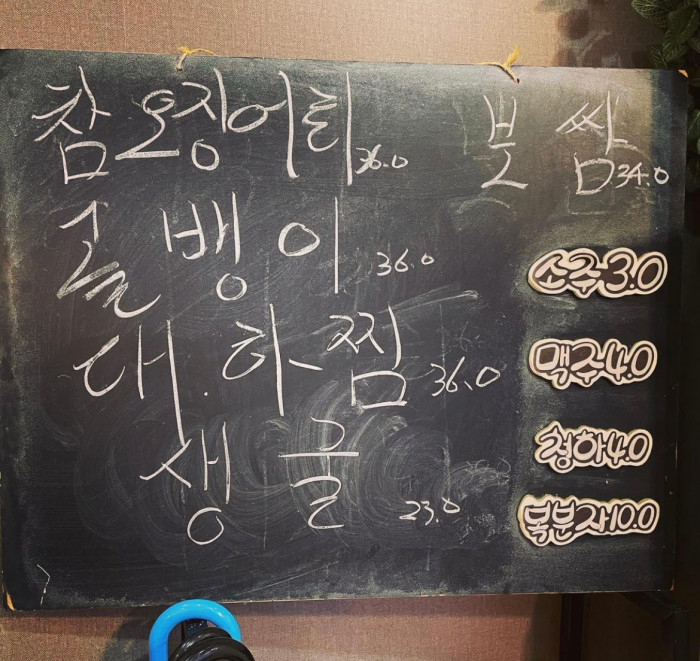 참오징어회 36.0
골뱅이 36.0
대하찜 36.0
생굴 23.0
보쌈 34.0
소주 3.0
맥주 4.0
청하 4.0
복분자 10.0